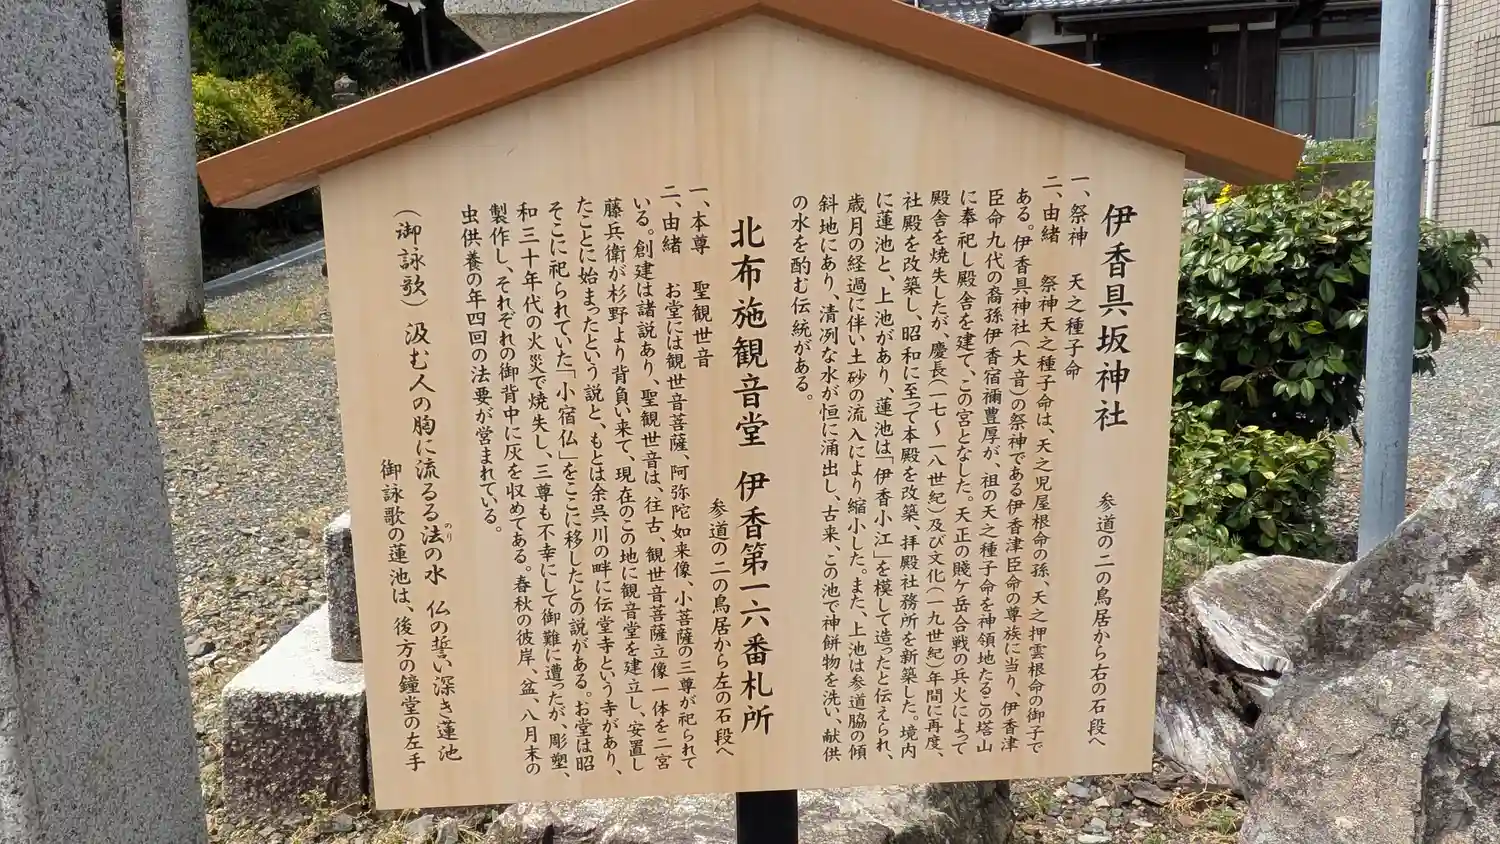 伊香具坂神社
参道の二の鳥居から右の石段へ
一、祭神　天之種子命
二、由緒　祭神天之種子命は、天之児屋根命の孫、天之押雲根命の御子で
ある。伊香具神社(大音)の祭神である伊香津臣命の尊族に当り、伊香津
臣命九代の裔孫伊香宿禰豊厚が、祖の天之種子命を神領地たるこの塔山
に奉祀し殿舎を建て、この宮となした。天正の賤ケ岳合戦の兵火によって
殿舎を焼失したが、慶長(一七～一八世紀)及び文化(一九世紀)年間に再度、
社殿を改築し、昭和に至って本殿を改築、拝殿社務所を新築した。境内
に蓮池と、上池があり、蓮池は「伊香小江」を模して造ったと伝えられ、
歳月の経過に伴い土砂の流入により縮小した。また、上池は参道脇の傾
斜地にあり、清冽な水が恒に涌出し、古来、この池で神餅物を洗い、献供
の水を酌む伝統がある。
北布施観音堂　伊香第一六番札所
参道の二の鳥居から左の石段へ
一、本尊　聖観世音
二、由緒　お堂には観世音菩薩、阿弥陀如来像、小菩薩の三尊が祀られて
いる。創建は諸説あり、聖観世音は、往古、観世音菩薩立像一体を二宮
藤兵衛が杉野より背負い来て、現在のこの地に観音堂を建立し、安置し
たことに始まったという説と、もとは余呉川の畔に伝堂寺という寺があり、
そこに祀られていた「小宿仏」をここに移したとの説がある。お堂は昭
和三十年代の火災で焼失し、三尊も不幸にして御難に遭ったが、彫塑、
製作し、それぞれの御背中に灰を収めてある。春秋の彼岸、盆、八月末の
虫供養の年四回の法要が営まれている。
(御詠歌)汲む人の胸に流るる法の水　仏の誓い深き蓮池
のり
御詠歌の蓮池は、後方の鐘堂の左手